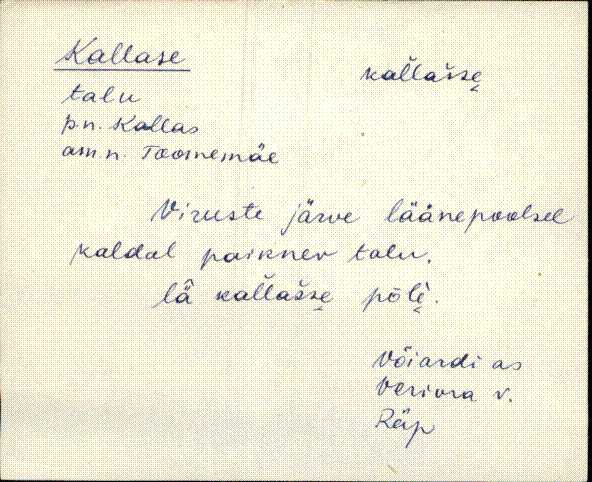 Kallase
kal̆lašše̮
talu
p.n. Kallas
am.n. Toomemäe
Viruste järve läänepoolsel
kaldal paiknev talu.
lä̂ kal̆lašše̮ pōlè̮.
Võiardi as
Veriora v.
Räp